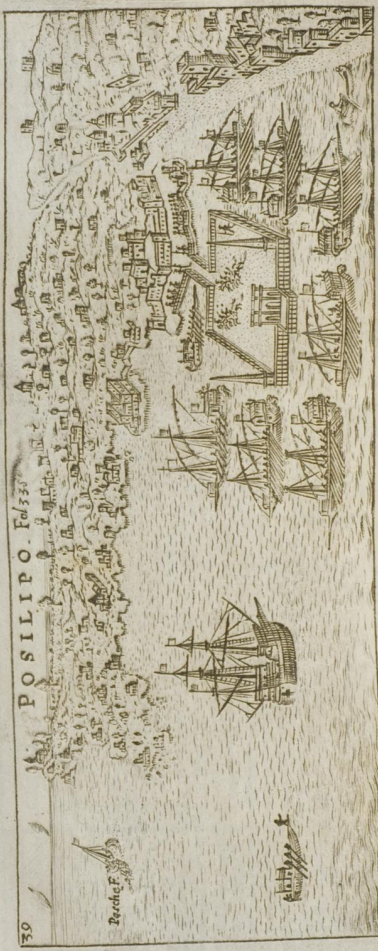 39
POSILIPO Fol 336
Pesche F.